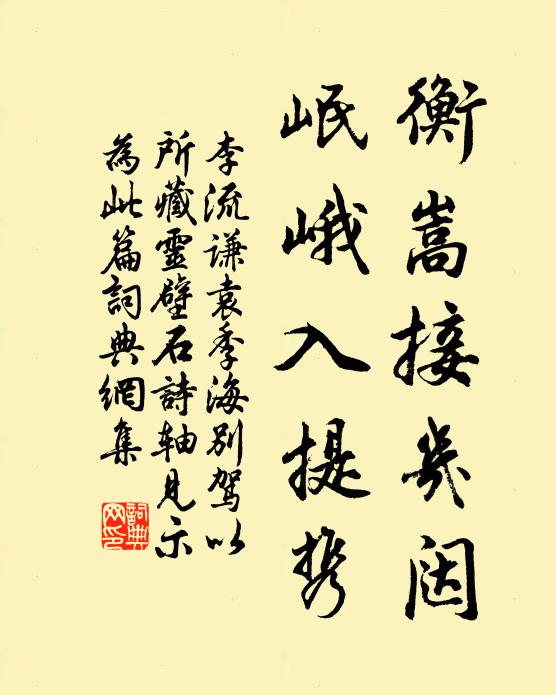 衡嵩接幾闼
岷峨入提携
李流謙袁季海别駕以
所藏靈壁石詩轴見示
為此篇詞典網集
詞典网印